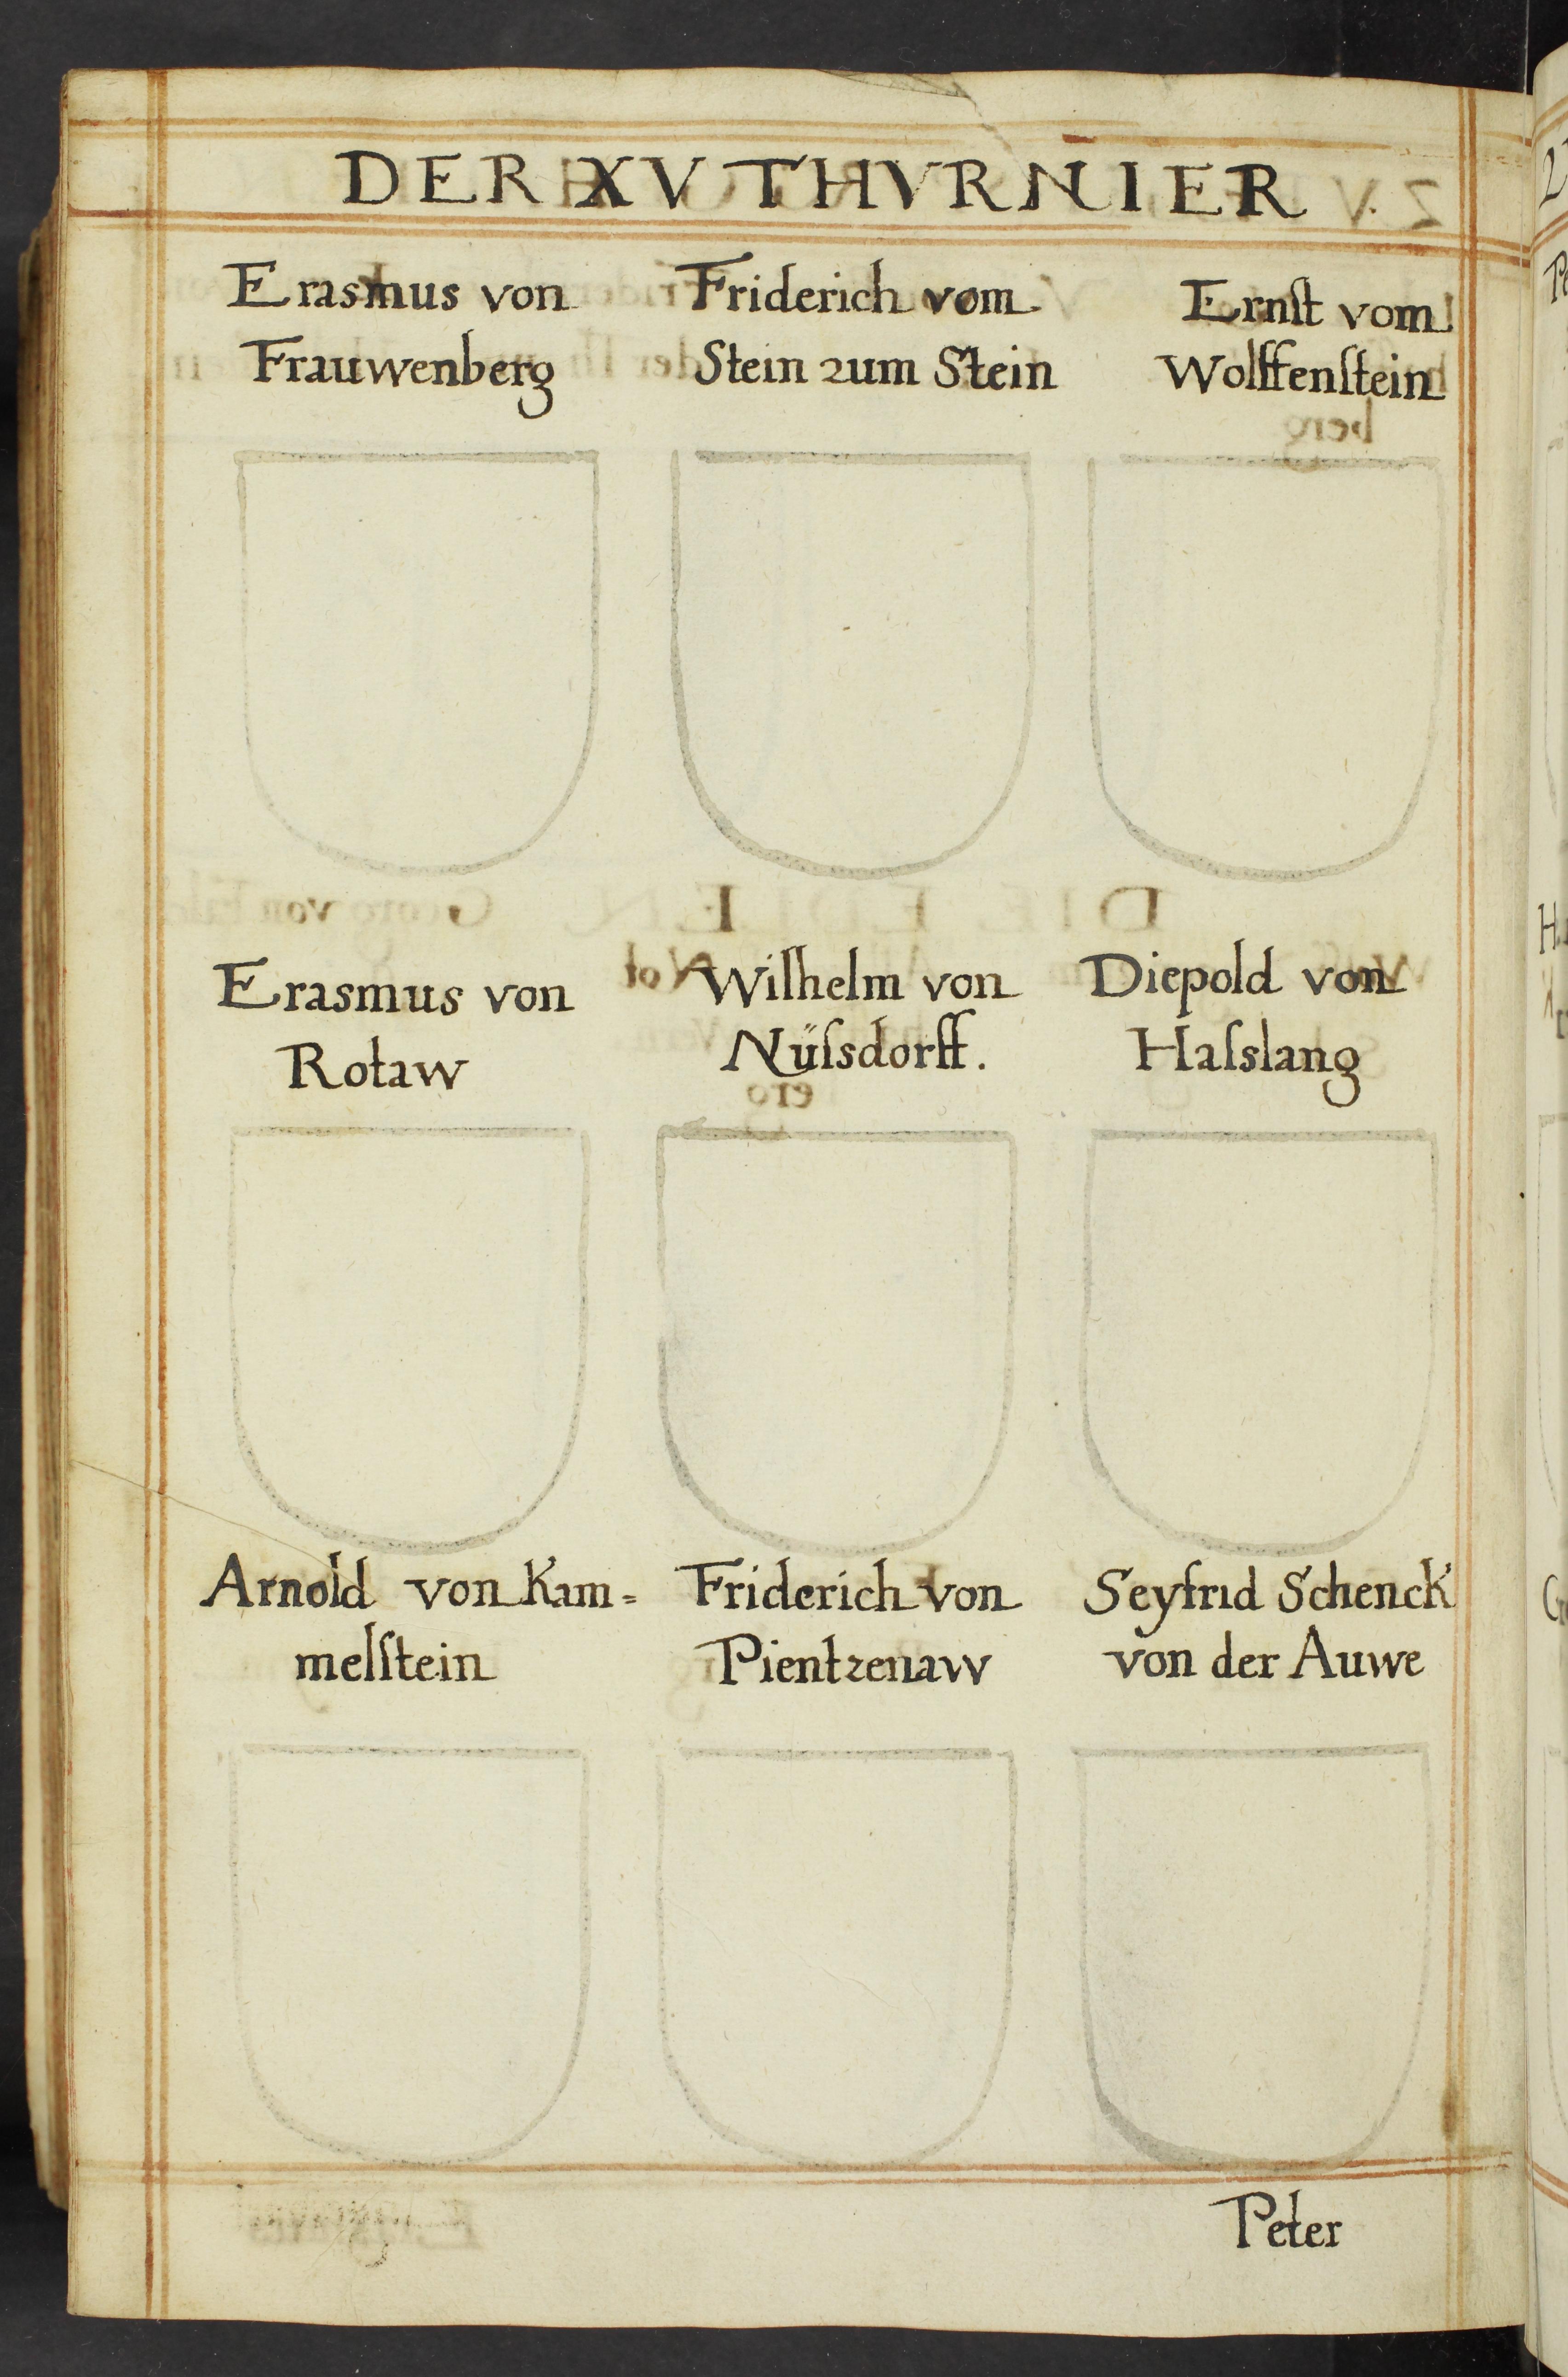 DER XV THVRNIER
Erasmus von
Frauwenberg
Friderich vom
Stein zum Stein
Ernſt vom
Wolffenſtein
Erasmus von
Rotaw
Wilhelm von
Nüſsdorff.
Diepold von
Haſslang
Arnold von Kam=
melſtein
Friderich von
Pientzenaw
Seyfrid Schenck
von der Auwe
Peter